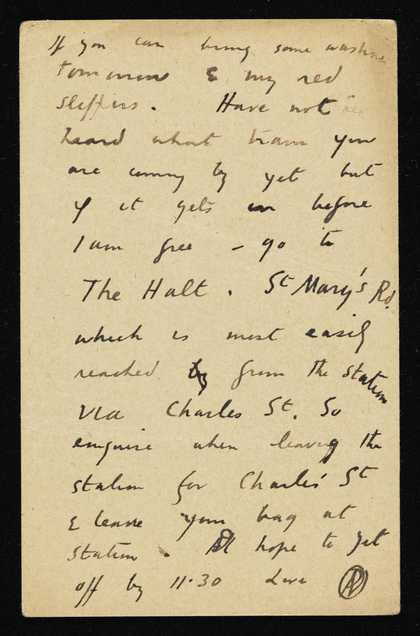 If you can bring some washing
tomorrow & my red
slippers. Have not
heard what train you
are coming by yet but
if it gets in before
I am free – go to
The Halt. St Mary's Rd.
which is most easily
reached from the station
via Charles St. So
enquire when leaving the
station for Charles' St
& leave your bag at
station. hope to get
off by 11.30 Love